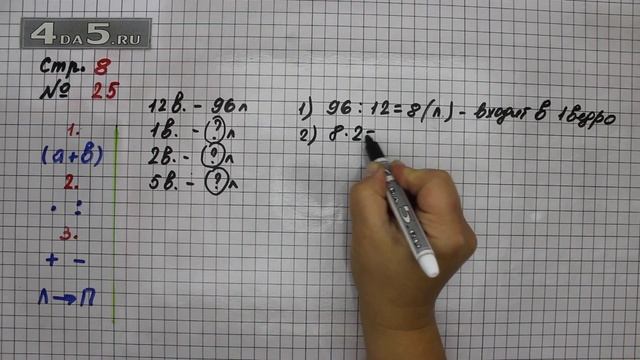 4DA5.RU
Стр. 8
№ 25
1.
(а+в)
2.
· :
3.
+ -
Л→П
12в. - 96л
1в. - ?л
2в. - ?л
5в. - ?л
1) 96 : 12 = 8 (л) - входит в 1 ведро
2) 8 · 2 =